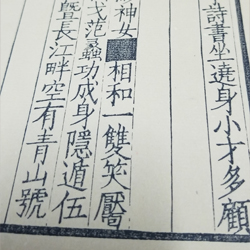 詩書坐遶身小才多顧
神女
相和一雙笑靨
戈范蠡功成身隱遁伍
曁長江畔空有青山號